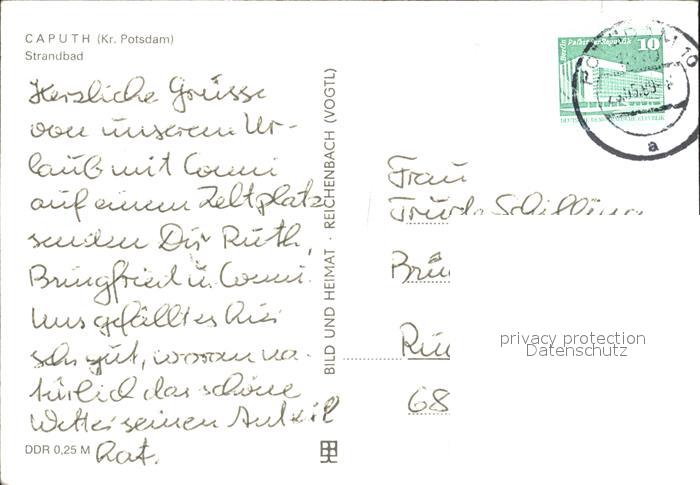 CAPUTH (Kr. Potsdam)
Strandbad
Herzliche Grüsse
von unserem Ur-
laub mit Conni
auf einem Zeltplatz
senden Dir Ruth,
Bringfried u. Conni.
Uns gefällt es hier
sehr gut, woran na-
türlich das schöne
Wetter seinen Anteil
hat.
DDR 0,25 M
BILD UND HEIMAT · REICHENBACH (VOGTL)
Berlin Palast der Republik 10
DEUTSCHE DEMOKRATISCHE REPUBLIK
POTSDAM 10
a
Frau
Schilling
68
privacy protection
Datenschutz